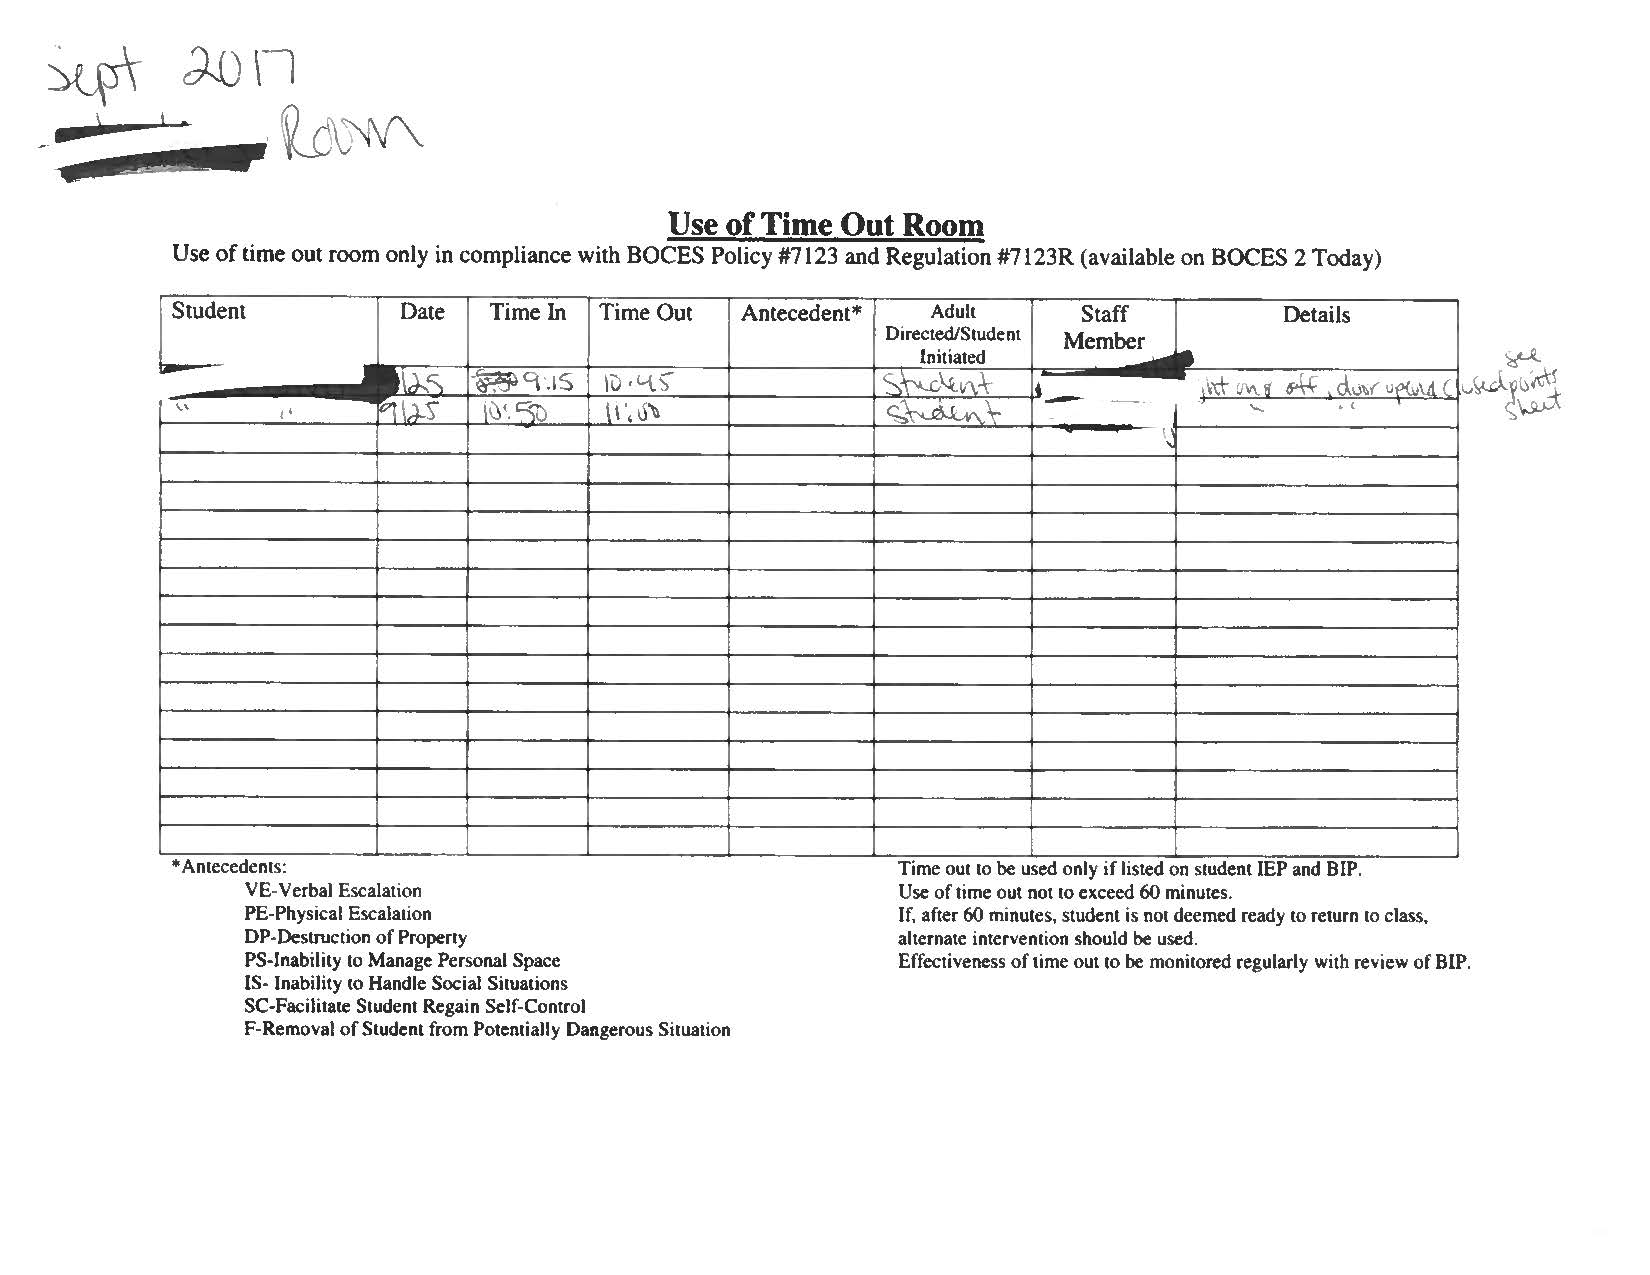 Sept 2017
Room
Use of Time Out Room
Use of time out room only in compliance with BOCES Policy #7123 and Regulation #7123R (available on BOCES 2 Today)
Student Date Time In Time Out Antecedent* Adult Directed/Student Initiated Staff Member Details
/25 9:15 10:45 Student on & off, door opened closed see points sheet
" " 9/25 10:50 11:00 Student " "
*Antecedents:
VE-Verbal Escalation
PE-Physical Escalation
DP-Destruction of Property
PS-Inability to Manage Personal Space
IS- Inability to Handle Social Situations
SC-Facilitate Student Regain Self-Control
F-Removal of Student from Potentially Dangerous Situation
Time out to be used only if listed on student IEP and BIP.
Use of time out not to exceed 60 minutes.
If, after 60 minutes, student is not deemed ready to return to class,
alternate intervention should be used.
Effectiveness of time out to be monitored regularly with review of BIP.